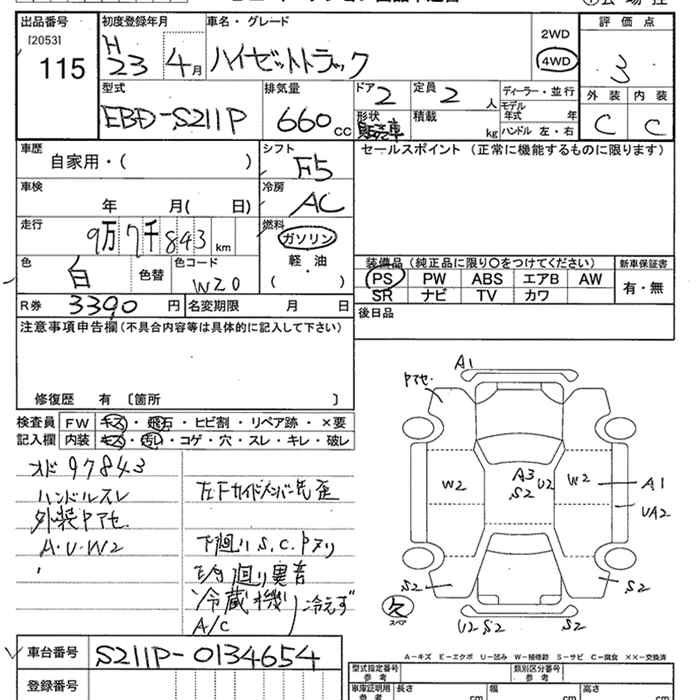 出品番号 初度登録年月 車名・グレード 評価点
[2053]
115 H23 4月 ハイゼットトラック 2WD
4WD 3
外装 内装
C C
型式 排気量 ドア 定員 ディーラー・並行
EBD-S211P 660cc 2 2人 モデル年式 年
形状 積載 kg ハンドル 左・右
車歴 シフト セールスポイント (正常に機能するものに限ります)
自家用・( ) F5
車検 冷房
年 月( 日) AC
走行 燃料
9万7千843km ガソリン
軽・油
( )
色 色替 色コード
白 W20
装備品 (純正品に限り○をつけてください) 新車保証書
PS PW ABS エアB AW 有・無
SR ナビ TV カワ
R券 3390円 名変期限 月 日
後日品
注意事項申告欄(不具合内容等は具体的に記入して下さい)
修復歴 有 〔箇所 〕
検査員 FW キズ・飛石・ヒビ割・リペア跡・×要
記入欄 内装 キズ・汚れ・コゲ・穴・スレ・キレ・破レ
オド97843
ハンドルスレ
外装Pアセ
A・U・W2
左Fサイドメンバー先歪
下廻りS.C.Pヌリ
廻り異音
冷蔵機 冷えず
A/C
A1
Pアセ
W2 A3 S2 U2 W2 A1
UA2
S2 S2
欠
スペア
U2 S2 S2
A-キズ E-エクボ U-凹み W-補修跡 S-サビ C-腐食 ××-交換済
車台番号 S211P-0134654
登録番号
型式指定番号 参考 類別区分番号 参考
車庫証明用 参考 長さ cm 幅 cm 高さ cm